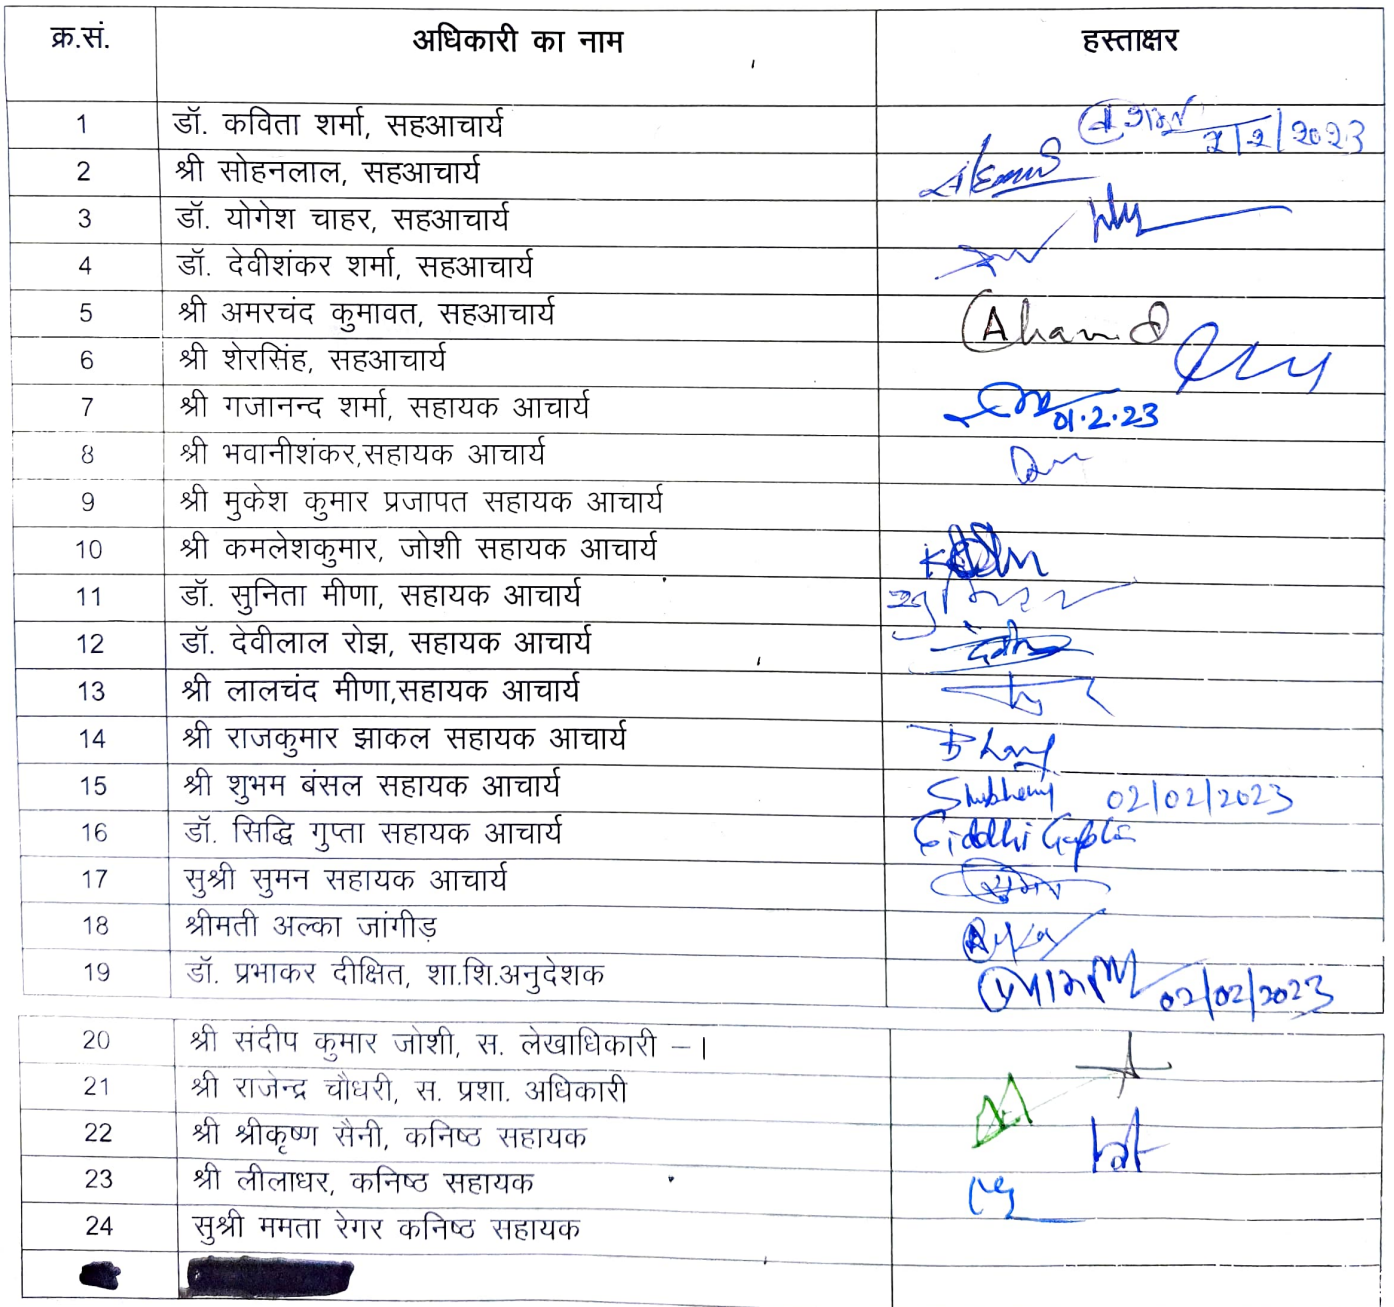 क्र.सं. अधिकारी का नाम हस्ताक्षर
1 डॉ. कविता शर्मा, सहआचार्य 2/2/2023
2 श्री सोहनलाल, सहआचार्य
3 डॉ. योगेश चाहर, सहआचार्य
4 डॉ. देवीशंकर शर्मा, सहआचार्य
5 श्री अमरचंद कुमावत, सहआचार्य
6 श्री शेरसिंह, सहआचार्य
7 श्री गजानन्द शर्मा, सहायक आचार्य 01.2.23
8 श्री भवानीशंकर,सहायक आचार्य
9 श्री मुकेश कुमार प्रजापत सहायक आचार्य
10 श्री कमलेशकुमार, जोशी सहायक आचार्य
11 डॉ. सुनिता मीणा, सहायक आचार्य
12 डॉ. देवीलाल रोझ, सहायक आचार्य
13 श्री लालचंद मीणा,सहायक आचार्य
14 श्री राजकुमार झाकल सहायक आचार्य
15 श्री शुभम बंसल सहायक आचार्य 02/02/2023
16 डॉ. सिद्धि गुप्ता सहायक आचार्य Siddhi Gupta
17 सुश्री सुमन सहायक आचार्य
18 श्रीमती अल्का जांगीड़
19 डॉ. प्रभाकर दीक्षित, शा.शि.अनुदेशक 02/02/2023
20 श्री संदीप कुमार जोशी, स. लेखाधिकारी – I
21 श्री राजेन्द्र चौधरी, स. प्रशा. अधिकारी
22 श्री श्रीकृष्ण सैनी, कनिष्ठ सहायक
23 श्री लीलाधर, कनिष्ठ सहायक
24 सुश्री ममता रेगर कनिष्ठ सहायक